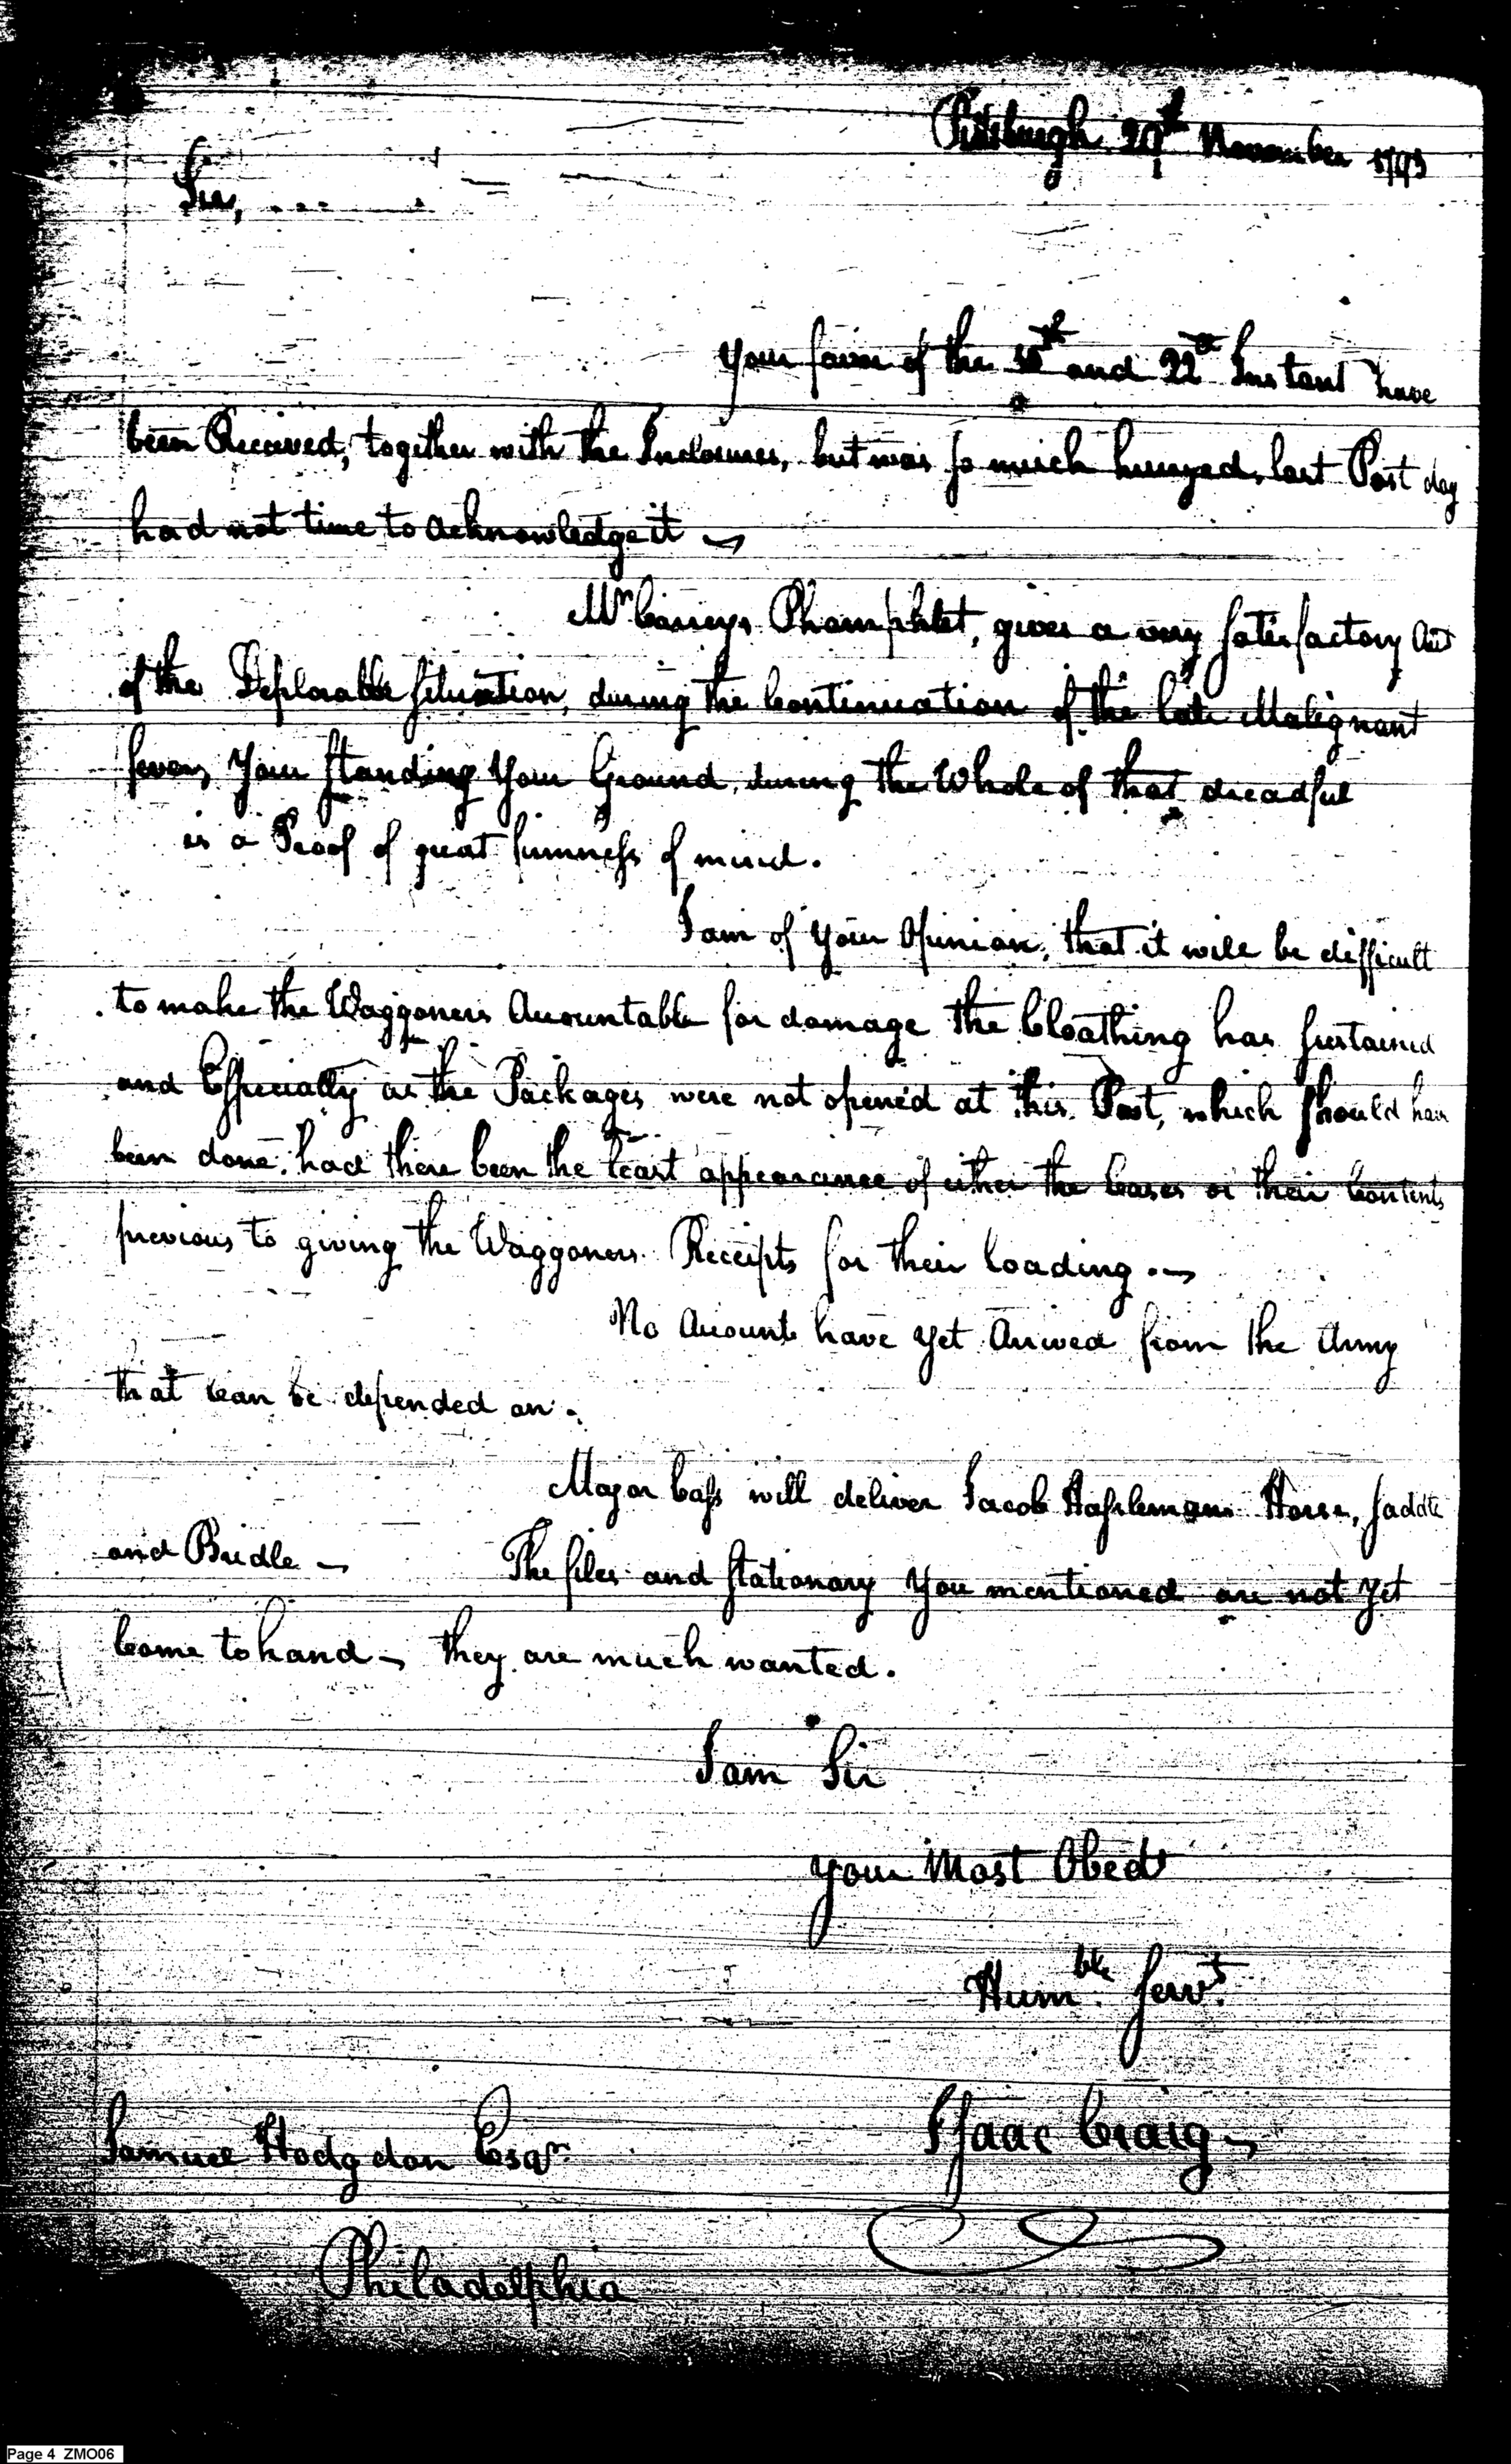 Pittsburgh 29th November 1793
Sir,
Your favor of the and 22d Instant have
been Received, together with the Inclosures, but was so much hurryed, last Post day
had not time to acknowledge it
Mr Careys Phamphlet, gives a very satisfactory Acct
of the Deplorable situation, during the Continuation of the late Malignant
fever, Your standing Your Ground, during the Whole of that dreadful
is a Proof of great firmness of mind.
I am of your Opinion, that it will be difficult
to make the Waggoners Accountable for damage the Cloathing has sustained
and Especially as the Packages were not opened at this Post, which should have
been done, had there been the least appearance of either the Cases or their Contents
previous to giving the Waggoners Receipts for their loading.
No Accounts have yet Arrived from the Army
that can be depended on.
Major Cass will deliver Jacob Haslemans Horse, saddle
and Bridle — The files and stationary you mentioned are not yet
Come to hand — they are much wanted.
I am Sir
your Most Obedt
Humble Servt.
Isaac Craig
Samuel Hodgdon Esqr.
Philadelphia
Page 4 ZMO06